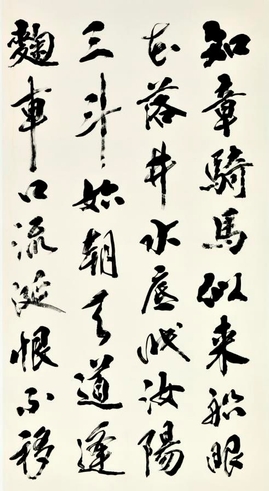 知章騎馬似乘船眼
花落井水底眠汝陽
三斗始朝天道逢
麴車口流涎恨不移